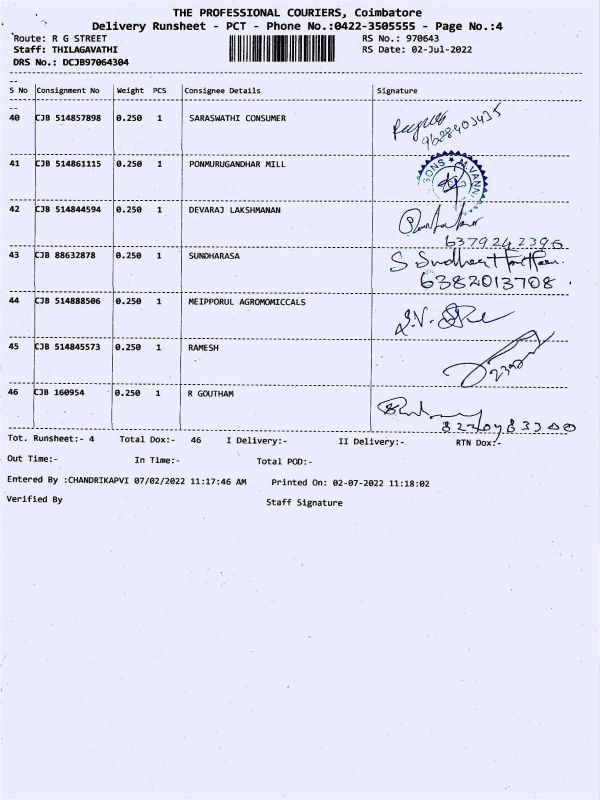 THE PROFESSIONAL COURIERS, Coimbatore
Delivery Runsheet - PCT - Phone No.:0422-3505555 - Page No.:4
Route: R G STREET RS No.: 970643
Staff: THILAGAVATHI RS Date: 02-Jul-2022
DRS No.: DCJB97064304
S No Consignment No Weight PCS Consignee Details Signature
40 CJB 514857898 0.250 1 SARASWATHI CONSUMER
9628403435
41 CJB 514861115 0.250 1 PONMURUGANDHAR MILL
42 CJB 514844594 0.250 1 DEVARAJ LAKSHMANAN
6379242396
43 CJB 88632878 0.250 1 SUNDHARASA
6382013708
44 CJB 514888506 0.250 1 MEIPPORUL AGROMOMICCALS
45 CJB 514845573 0.250 1 RAMESH
46 CJB 160954 0.250 1 R GOUTHAM
8220983300
Tot. Runsheet:- 4 Total Dox:- 46 I Delivery:- II Delivery:- RTN Dox:-
Out Time:- In Time:- Total POD:-
Entered By :CHANDRIKAPVI 07/02/2022 11:17:46 AM Printed On: 02-07-2022 11:18:02
Verified By Staff Signature